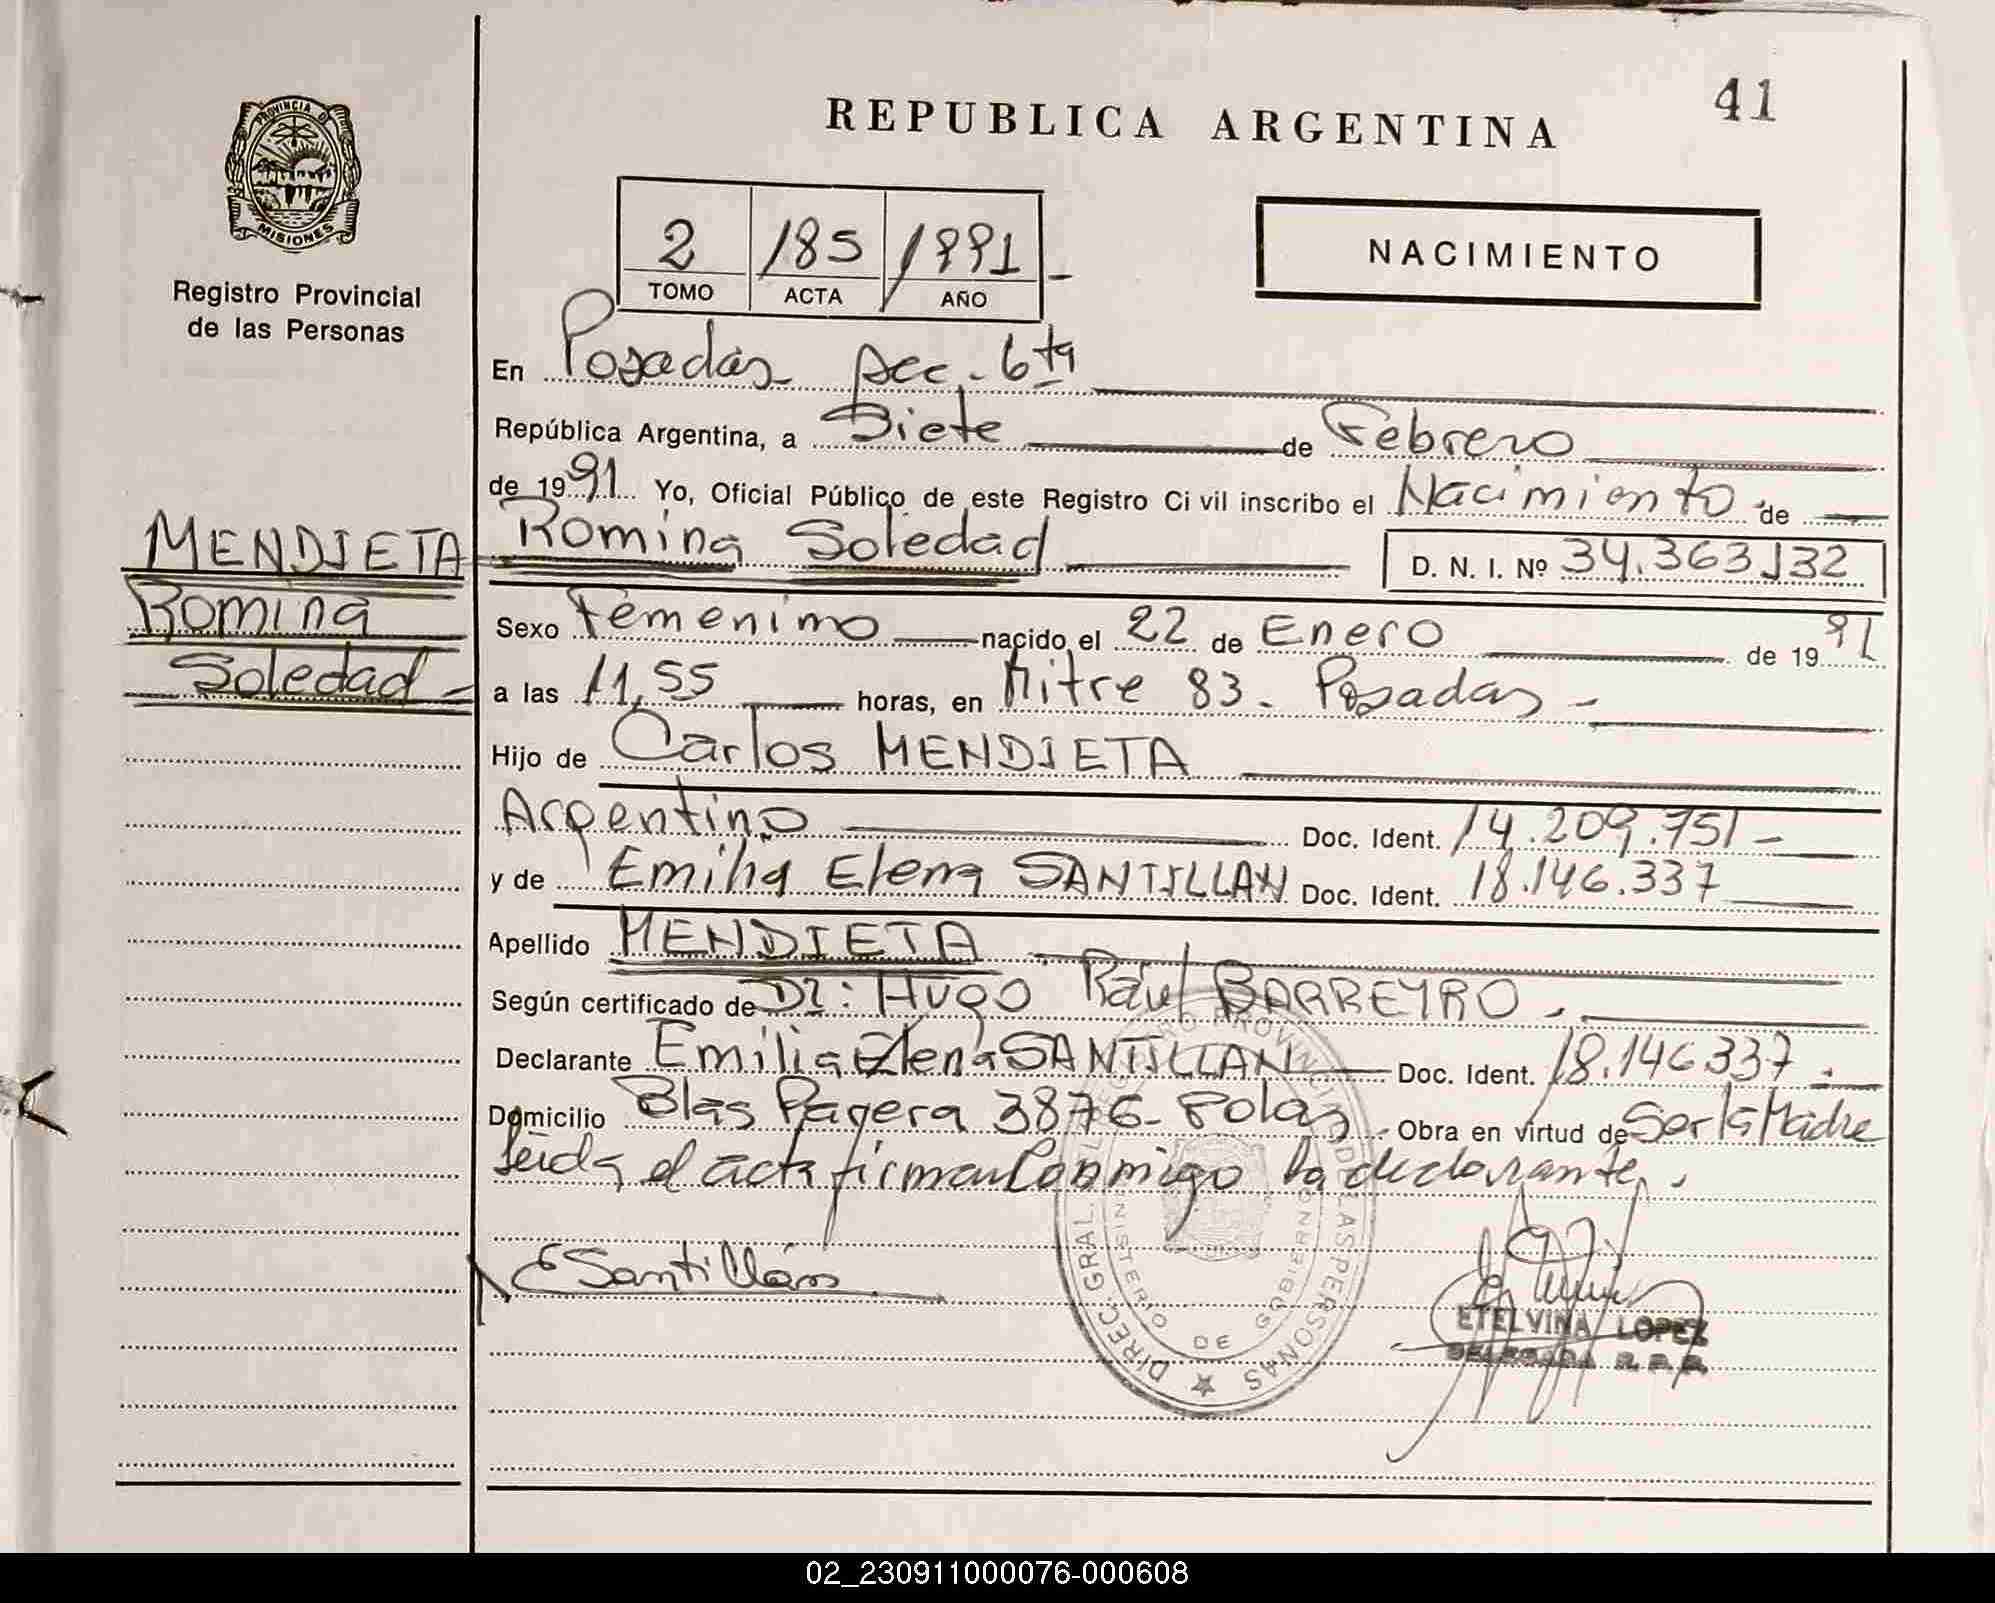 41
REPUBLICA ARGENTINA
PROVINCIA DE
MISIONES
Registro Provincial
de las Personas
2 185 1991
TOMO ACTA AÑO
NACIMIENTO
En Posadas Sec. 6ta
República Argentina, a Siete de Febrero
de 1991 Yo, Oficial Público de este Registro Ci vil inscribo el Nacimiento de
MENDIETA
Romina
Soledad
Romina Soledad D. N. I. Nº 34.363.132
Sexo Femenino nacido el 22 de Enero de 1991
a las 11,55 horas, en Mitre 83 - Posadas -
Hijo de Carlos MENDIETA
Argentino Doc. Ident. 14.209.751 -
y de Emilia Elena SANTILLAN Doc. Ident. 18.146.337
Apellido MENDIETA
Según certificado de Dr: Hugo Raul BARREYRO.
Declarante Emilia Elena SANTILLAN Doc. Ident. 18.146337.
Domicilio Blas Parera 3876 - Pdas. Obra en virtud de Ser la Madre
leida el acta firman Conmigo la declarante.
ESantillán
DIREC. GRAL. REGISTRO PROVINCIAL DE LAS PERSONAS
MINISTERIO DE GOBIERNO
ETELVINA LOPEZ
DELEGADA R. P. P.
02_230911000076-000608